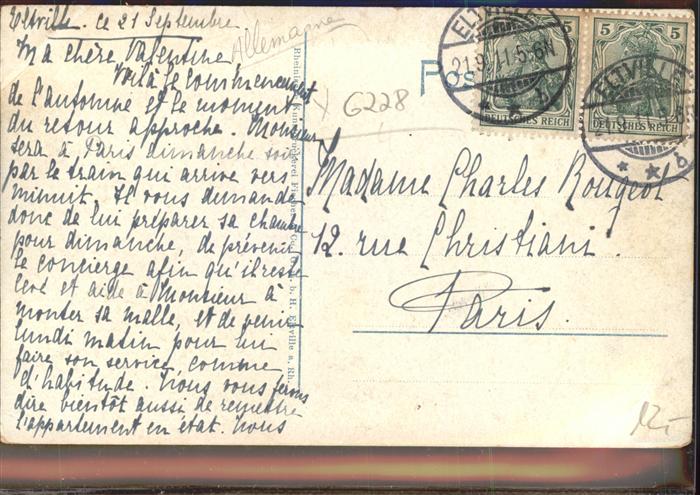 Eltville. ce 21 Septembre.
Allemagne
Ma chère Valentine
Voilà le commencement
de l'automne et le moment
du retour approche. Monsieur
sera à Paris dimanche soir
par le train qui arrive vers
minuit. Il vous demande
donc de lui préparer sa chambre
pour dimanche, de prévenir
le concierge afin qu'il reste
levé et aide à Monsieur à
monter sa malle, et de venir
lundi matin pour lui
faire son service, comme
d'habitude. Nous vous ferons
dire bientôt aussi de remettre
l'appartement en état. Nous
Pos
G228
ELTVILLE
21.9.11.5-6N
5
DEUTSCHES REICH
5
DEUTSCHES REICH
ELTVILLE
Madame Charles Rougeot
12. rue Christiani.
Paris.
12,-